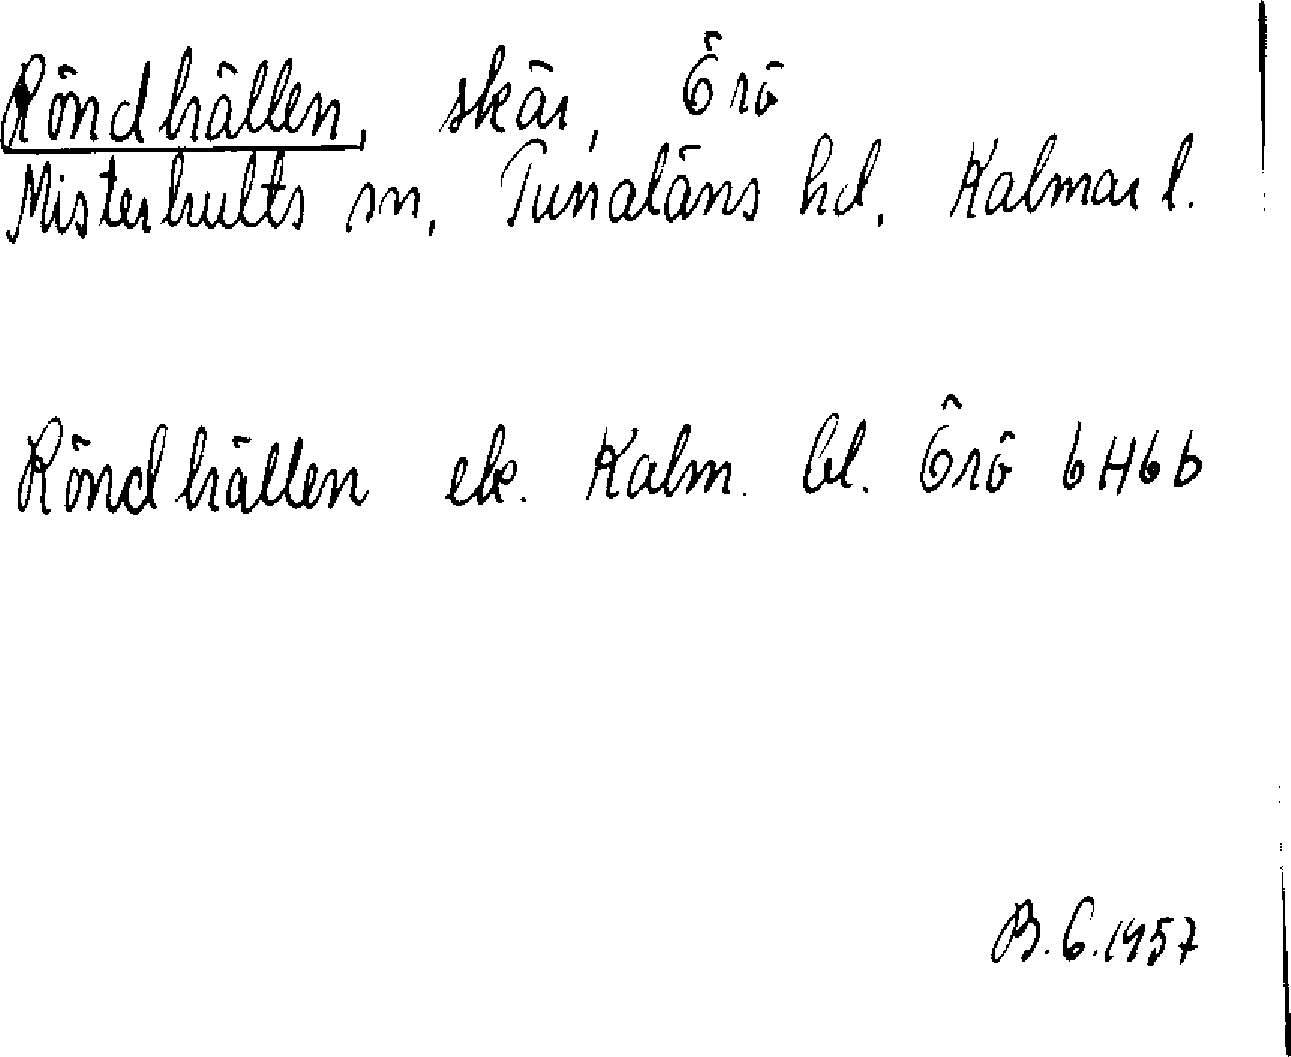 Röndhällen, skär, Örö
Misterhults sn, Tunaläns hd. Kalmar l.
Röndhällen ek. Kalm. bl. Örö 6H6b
B.G.1957